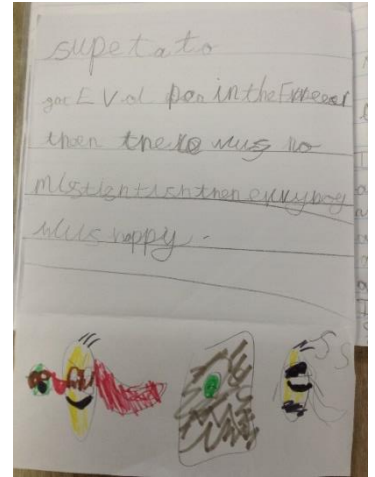 supetato
got EVel pea in the Freeeer
then there wus no
mistightish then evrybog
wus happy.
SS